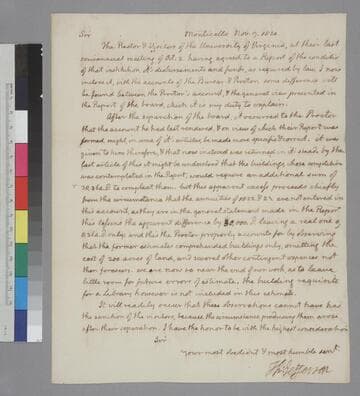 Sir Monticello Nov. 9. 1820.
The Rector & Visitors of the University of Virginia, at their last
semiannual meeting of Oct. 2. having agreed to a Report of the condition
of that institution, it's disbursements and funds, as required by law, I now
inclose it, with the accounts of the Bursar & Proctor. some difference will
be found between the Proctor's account, & the general view presented in
the Report of the board, which it is my duty to explain.
After the separation of the board, it occurred to the Proctor
that the account he had last rendered, & on view of which their Report was
formed might in some of it's articles be made more specific & correct. it was
given to him therefore, & that now inclosed was returned. in it stands by the
last article of this it might be understood that the buildings whose completion
was contemplated in the Report, would require an additional sum of
D. to compleat them. but this apparent excess proceeds chiefly
from the circumstance that the annuities of 1822. & 23 are not entered in
this account, as they are in the general statement made in the Report.
this lessens the apparent difference by 30,000. D. leaving a real one of
D. only; and this the Proctor properly accounts for by observing
that the former estimates comprehended buildings only, omitting the
cost of 200 acres of land, and several other contingent expences not
then foreseen. we are now so near the end of our work as to leave
little room for future errors of estimate. the building requisite
for a Library however is not included in this estimate.
It will readily occur that these observations cannot have had
the sanction of the visitors, because the circumstances producing them arose
after their separation. I have the honor to be with the highest consideration
Sir
Your most obedient & most humble servt.
Th: Jefferson